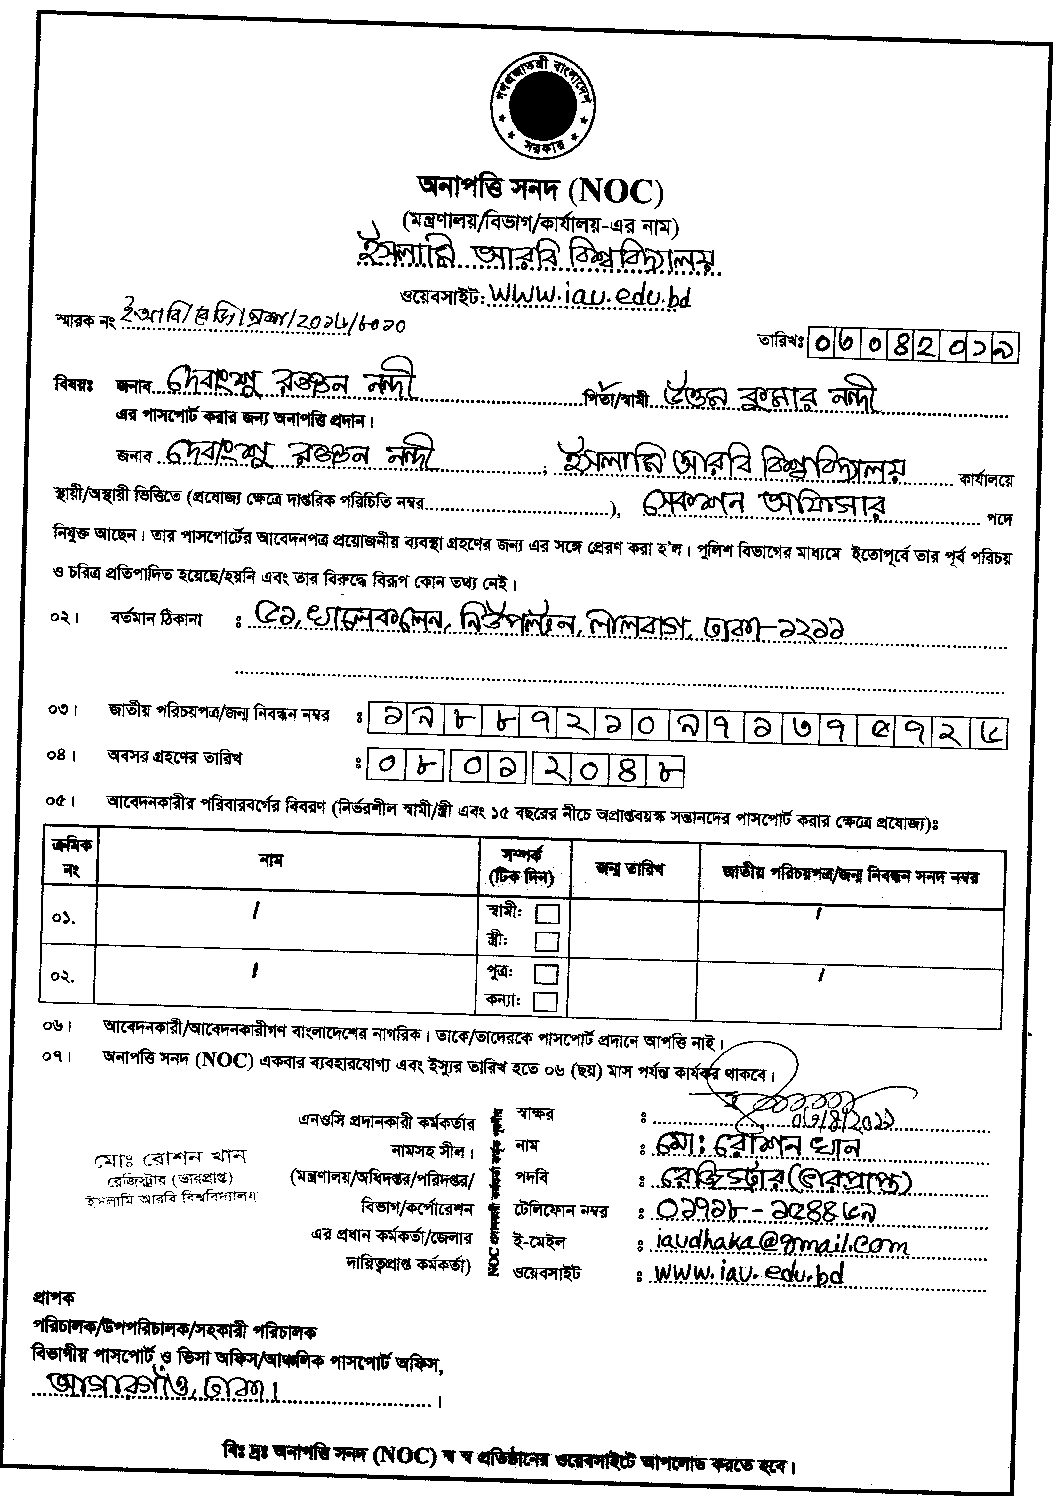 গণপ্রজাতন্ত্রী বাংলাদেশ
সরকার
অনাপত্তি সনদ (NOC)
(মন্ত্রণালয়/বিভাগ/কার্যালয়-এর নাম)
ইসলামি আরবি বিশ্ববিদ্যালয়
ওয়েবসাইট: www.iau.edu.bd
স্মারক নং ইআবি/রেজি/প্রশা/২০১৬/৮০২০
তারিখঃ ০৩০৪২০১৯
বিষয়ঃ জনাব দেবাংশু রঞ্জন নন্দী পিতা/স্বামী উত্তম কুমার নন্দী
এর পাসপোর্ট করার জন্য অনাপত্তি প্রদান।
জনাব দেবাংশু রঞ্জন নন্দী, ইসলামি আরবি বিশ্ববিদ্যালয় কার্যালয়ে
স্থায়ী/অস্থায়ী ভিত্তিতে (প্রযোজ্য ক্ষেত্রে দাপ্তরিক পরিচিতি নম্বর..............................), সেকশন অফিসার পদে
নিযুক্ত আছেন। তার পাসপোর্টের আবেদনপত্র প্রয়োজনীয় ব্যবস্থা গ্রহণের জন্য এর সঙ্গে প্রেরণ করা হ'ল। পুলিশ বিভাগের মাধ্যমে ইতোপূর্বে তার পূর্ব পরিচয়
ও চরিত্র প্রতিপাদিত হয়েছে/হয়নি এবং তার বিরুদ্ধে বিরূপ কোন তথ্য নেই।
০২। বর্তমান ঠিকানা : ৫১, খালেক লেন, নিউপল্টন, লালবাগ, ঢাকা-১২১১
০৩। জাতীয় পরিচয়পত্র/জন্ম নিবন্ধন নম্বর : ১৯৮৮৭২১০৯৭১৩৭৫৭২৬
০৪। অবসর গ্রহণের তারিখ : ০৮০১২০৪৮
০৫। আবেদনকারীর পরিবারবর্গের বিবরণ (নির্ভরশীল স্বামী/স্ত্রী এবং ১৫ বছরের নীচে অপ্রাপ্তবয়স্ক সন্তানদের পাসপোর্ট করার ক্ষেত্রে প্রযোজ্য)ঃ
ক্রমিক নং নাম সম্পর্ক (টিক দিন) জন্ম তারিখ জাতীয় পরিচয়পত্র/জন্ম নিবন্ধন সনদ নম্বর
০১. / স্বামীঃ /
স্ত্রীঃ
০২. / পুত্রঃ /
কন্যাঃ
০৬। আবেদনকারী/আবেদনকারীগণ বাংলাদেশের নাগরিক। তাকে/তাদেরকে পাসপোর্ট প্রদানে আপত্তি নাই।
০৭। অনাপত্তি সনদ (NOC) একবার ব্যবহারযোগ্য এবং ইস্যুর তারিখ হতে ০৬ (ছয়) মাস পর্যন্ত কার্যকর থাকবে।
এনওসি প্রদানকারী কর্মকর্তার স্বাক্ষর : ০৩/৪/২০১৯
নামসহ সীল। নাম : মো: রোশন খান
মোঃ রোশন খান
রেজিস্ট্রার (ভারপ্রাপ্ত)
ইসলামি আরবি বিশ্ববিদ্যালয়
(মন্ত্রণালয়/অধিদপ্তর/পরিদপ্তর/ পদবি : রেজিস্ট্রার (ভারপ্রাপ্ত)
বিভাগ/কর্পোরেশন টেলিফোন নম্বর : ০১৭১৮-১৫৪৪৬৯
এর প্রধান কর্মকর্তা/জেলার ই-মেইল : iaudhaka@gmail.com
দায়িত্বপ্রাপ্ত কর্মকর্তা) ওয়েবসাইট : www.iau.edu.bd
প্রাপক
পরিচালক/উপপরিচালক/সহকারী পরিচালক
বিভাগীয় পাসপোর্ট ও ভিসা অফিস/আঞ্চলিক পাসপোর্ট অফিস,
আগারগাঁও, ঢাকা।
বিঃ দ্রঃ অনাপত্তি সনদ (NOC) স্ব স্ব প্রতিষ্ঠানের ওয়েবসাইটে আপলোড করতে হবে।